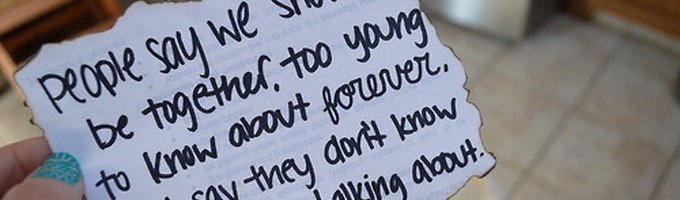 people say we
be together. too young
to know about forever.
say they don't know
talking about.